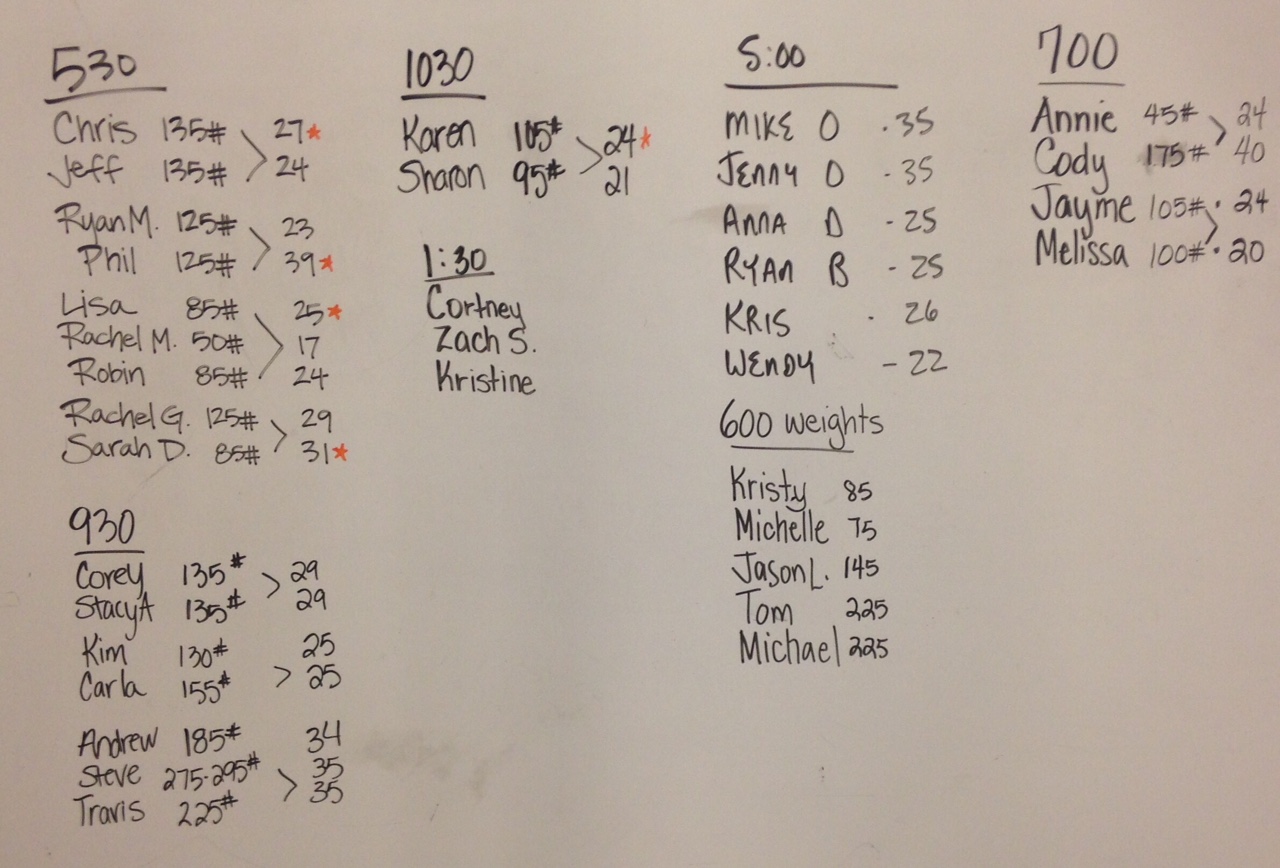 530
Chris 135# > 27*
Jeff 135# 24
Ryan M. 125# > 23
Phil 125# 39*
Lisa 85# > 25*
Rachel M. 50# 17
Robin 85# 24
Rachel G. 125# > 29
Sarah D. 85# 31*
930
Corey 135# > 29
Stacy A 135# 29
Kim 130# 25
Carla 155# > 25
Andrew 185# 34
Steve 275-295# > 35
Travis 225# 35
1030
Karen 105# > 24*
Sharon 95# 21
1:30
Cortney
Zach S.
Kristine
5:00
MIKE O .35
JENNY O - 35
ANNA D - 25
RYAN B - 25
KRIS . 26
WENDY - 22
600 weights
Kristy 85
Michelle 75
Jason L. 145
Tom 225
Michael 225
700
Annie 45# > 24
Cody 175# 40
Jayme 105# > . 24
Melissa 100# . 20